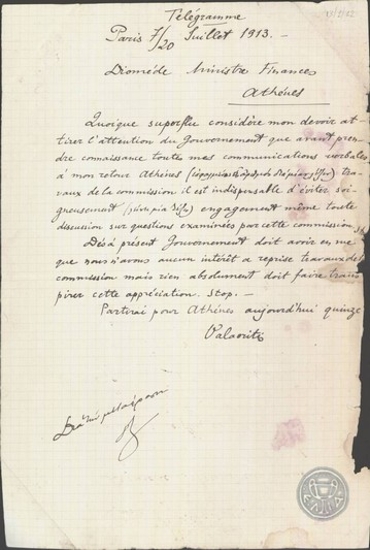 Télégramme
Paris 7/20 Juillet 1913.-
Diomède Ministre Finances
Athènes
Quoique superflu considère mon devoir at-
tirer l'attention du Gouvernement que avant pren-
dre connaissance toute mes communications verbales
à mon retour Athènes tra-
vaux de la commission il est indispensable d'éviter soi-
gneusement engagement même toute
discussion sur questions examinées par cette commission. St.
Dès à présent Gouvernement doit avoir en vue
que nous n'avons aucun intérêt à reprise travaux de
commission mais rien absolument doit faire trans-
pirer cette appréciation. Stop.-
Partirai pour Athènes aujourd'hui quinze
Valaoriti